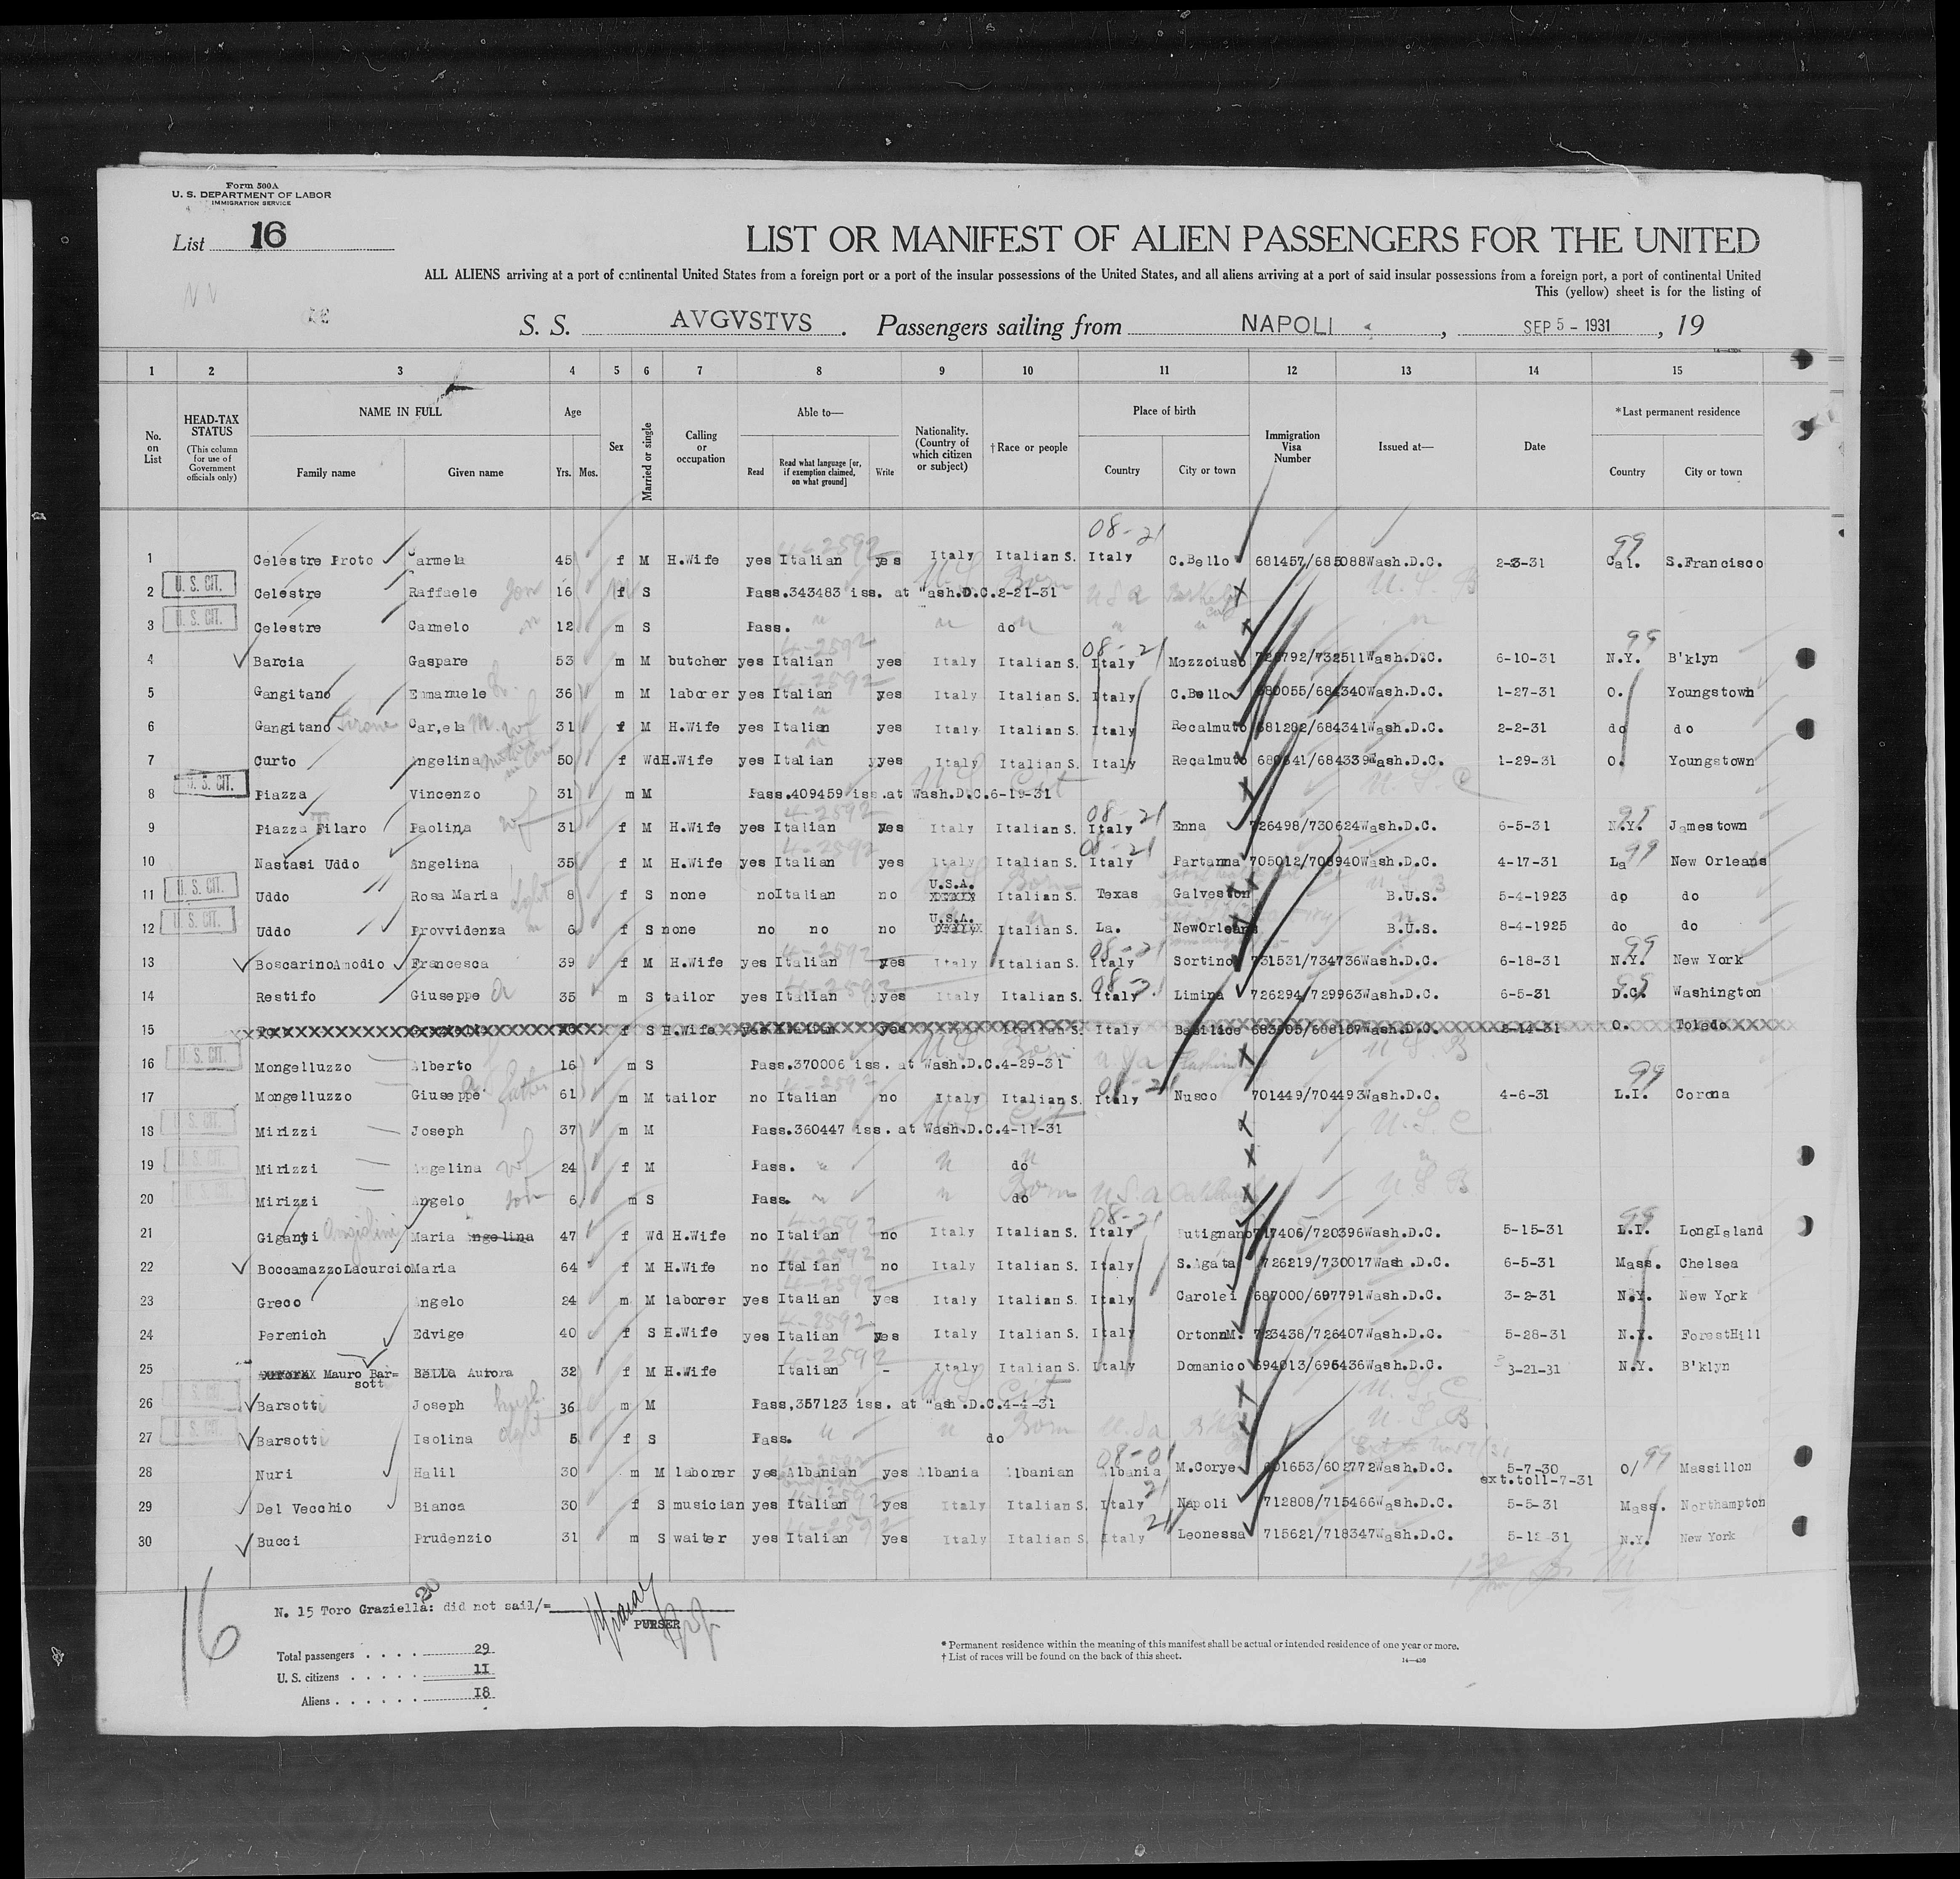 Form 500A
U. S. DEPARTMENT OF LABOR
IMMIGRATION SERVICE
List 16
LIST OR MANIFEST OF ALIEN PASSENGERS FOR THE UNITED
ALL ALIENS arriving at a port of continental United States from a foreign port or a port of the insular possessions of the United States, and all aliens arriving at a port of said insular possessions from a foreign port, a port of continental United
This (yellow) sheet is for the listing of
S. S. AVGVSTVS. Passengers sailing from NAPOLI, SEP 5 - 1931, 19
1 2 3 4 5 6 7 8 9 10 11 12 13 14 15
No. on List
HEAD-TAX STATUS (This column for use of Government officials only)
NAME IN FULL
Family name Given name
Age
Yrs. Mos.
Sex
Married or single
Calling or occupation
Able to—
Read Read what language [or, if exemption claimed, on what ground] Write
Nationality. (Country of which citizen or subject)
† Race or people
Place of birth
Country City or town
Immigration Visa Number
Issued at—
Date
*Last permanent residence
Country City or town
08-21
1 Celestre Proto Carmela 45 f M H.Wife yes Italian yes Italy Italian S. Italy C.Bello 681457/685088 Wash.D.C. 2-3-31 Cal. S.Francisco
2 U. S. CIT. Celestre Raffaele son 16 m S Pass.343483 iss. at "ash.D.C.2-21-31 U.S. Born USA U.S.B
3 U. S. CIT. Celestre Carmelo 12 m S Pass. " do
4 Barcia Gaspare 53 m M butcher yes Italian yes Italy Italian S. Italy Mezzoiuso 728792/732511 Wash.D.C. 6-10-31 N.Y. B'klyn
5 Gangitano Emmanuele 36 m M laborer yes Italian yes Italy Italian S. Italy C.Bello 680055/684340 Wash.D.C. 1-27-31 O. Youngstown
6 Gangitano Car,ela 31 f M H.Wife yes Italian yes Italy Italian S. Italy Recalmuto 681282/684341 Wash.D.C. 2-2-31 do do
7 Curto Angelina 50 f Wd H.Wife yes Italian yes Italy Italian S. Italy Recalmuto 680841/684339 Wash.D.C. 1-29-31 O. Youngstown
8 U. S. CIT. Piazza Vincenzo 31 m M Pass.409459 iss.at Wash.D.C.6-19-31 U.S. Cit U.S.C
9 Piazza Filaro Paolina wf 31 f M H.Wife yes Italian yes Italy Italian S. Italy Enna 726498/730624 Wash.D.C. 6-5-31 N.Y. Jamestown
10 Nastasi Uddo Angelina 35 f M H.Wife yes Italian yes Italy Italian S. Italy Partanna 705012/708940 Wash.D.C. 4-17-31 La New Orleans
11 U. S. CIT. Uddo Rosa Maria 8 f S none no Italian no U.S.A. Italian S. Texas Galveston B.U.S. 5-4-1923 do do
12 U. S. CIT. Uddo Provvidenza 6 f S none no no no U.S.A. Italian S. La. NewOrleans B.U.S. 8-4-1925 do do
13 BoscarinoAmodio Francesca 39 f M H.Wife yes Italian yes Italy Italian S. Italy Sortino 731531/734736 Wash.D.C. 6-18-31 N.Y. New York
14 Restifo Giuseppe 35 m S tailor yes Italian yes Italy Italian S. Italy Limina 726294/729963 Wash.D.C. 6-5-31 D.C. Washington
15 f S H.Wife yes Italian yes Italian S. Italy Basilice Wash.D.C. 2-14-31 O. Toledo
16 U. S. CIT. Mongelluzzo Alberto 16 m S Pass.370006 iss. at Wash.D.C.4-29-31 U.S. Born U.S.B
17 Mongelluzzo Giuseppe father 61 m M tailor no Italian no Italy Italian S. Italy Nusco 701449/704493 Wash.D.C. 4-6-31 L.I. Corona
18 U. S. CIT. Mirizzi Joseph 37 m M Pass.360447 iss. at Wash.D.C.4-11-31 U.S. Cit U.S.C
19 U. S. CIT. Mirizzi Angelina wf 24 f M Pass. " do
20 U. S. CIT. Mirizzi Angelo son 6 m S Pass. do Born U.S.A U.S.B
21 Giganti Maria Angelina 47 f Wd H.Wife no Italian no Italy Italian S. Italy Putignano 717406/720396 Wash.D.C. 5-15-31 L.I. LongIsland
22 BoccamazzoLacurcio Maria 64 f M H.Wife no Italian no Italy Italian S. Italy S.Agata 726219/730017 Wash.D.C. 6-5-31 Mass. Chelsea
23 Greco Angelo 24 m M laborer yes Italian yes Italy Italian S. Italy Carolei 687000/697791 Wash.D.C. 3-2-31 N.Y. New York
24 Perenich Edvige 40 f S H.Wife yes Italian yes Italy Italian S. Italy OrtonaM. 723438/726407 Wash.D.C. 5-28-31 N.Y. ForestHill
25 Mauro Bar=sott Aurora 32 f M H.Wife Italian - Italy Italian S. Italy Domanico 694013/696436 Wash.D.C. 3-21-31 N.Y. B'klyn
26 Barsotti Joseph 36 m M Pass,357123 iss. at "ash.D.C.4-4-31 U.S. Cit U.S.C
27 Barsotti Isolina 5 f S Pass. do Born U.S.B
28 Nuri Halil 30 m M laborer yes Albanian yes Albania Albanian Albania M.Corye 601653/602772 Wash.D.C. 5-7-30 ext.to11-7-31 O/ Massillon
29 Del Vecchio Bianca 30 f S musician yes Italian yes Italy Italian S. Italy Napoli 712808/715466 Wash.D.C. 5-5-31 Mass. Northampton
30 Bucci Prudenzio 31 m S waiter yes Italian yes Italy Italian S. Italy Leonessa 715621/718347 Wash.D.C. 5-12-31 N.Y. New York
16
20
N. 15 Toro Graziella: did not sail/=
PURSER
Total passengers . . . . 29
U. S. citizens . . . . . 11
Aliens . . . . . . 18
* Permanent residence within the meaning of this manifest shall be actual or intended residence of one year or more.
† List of races will be found on the back of this sheet.